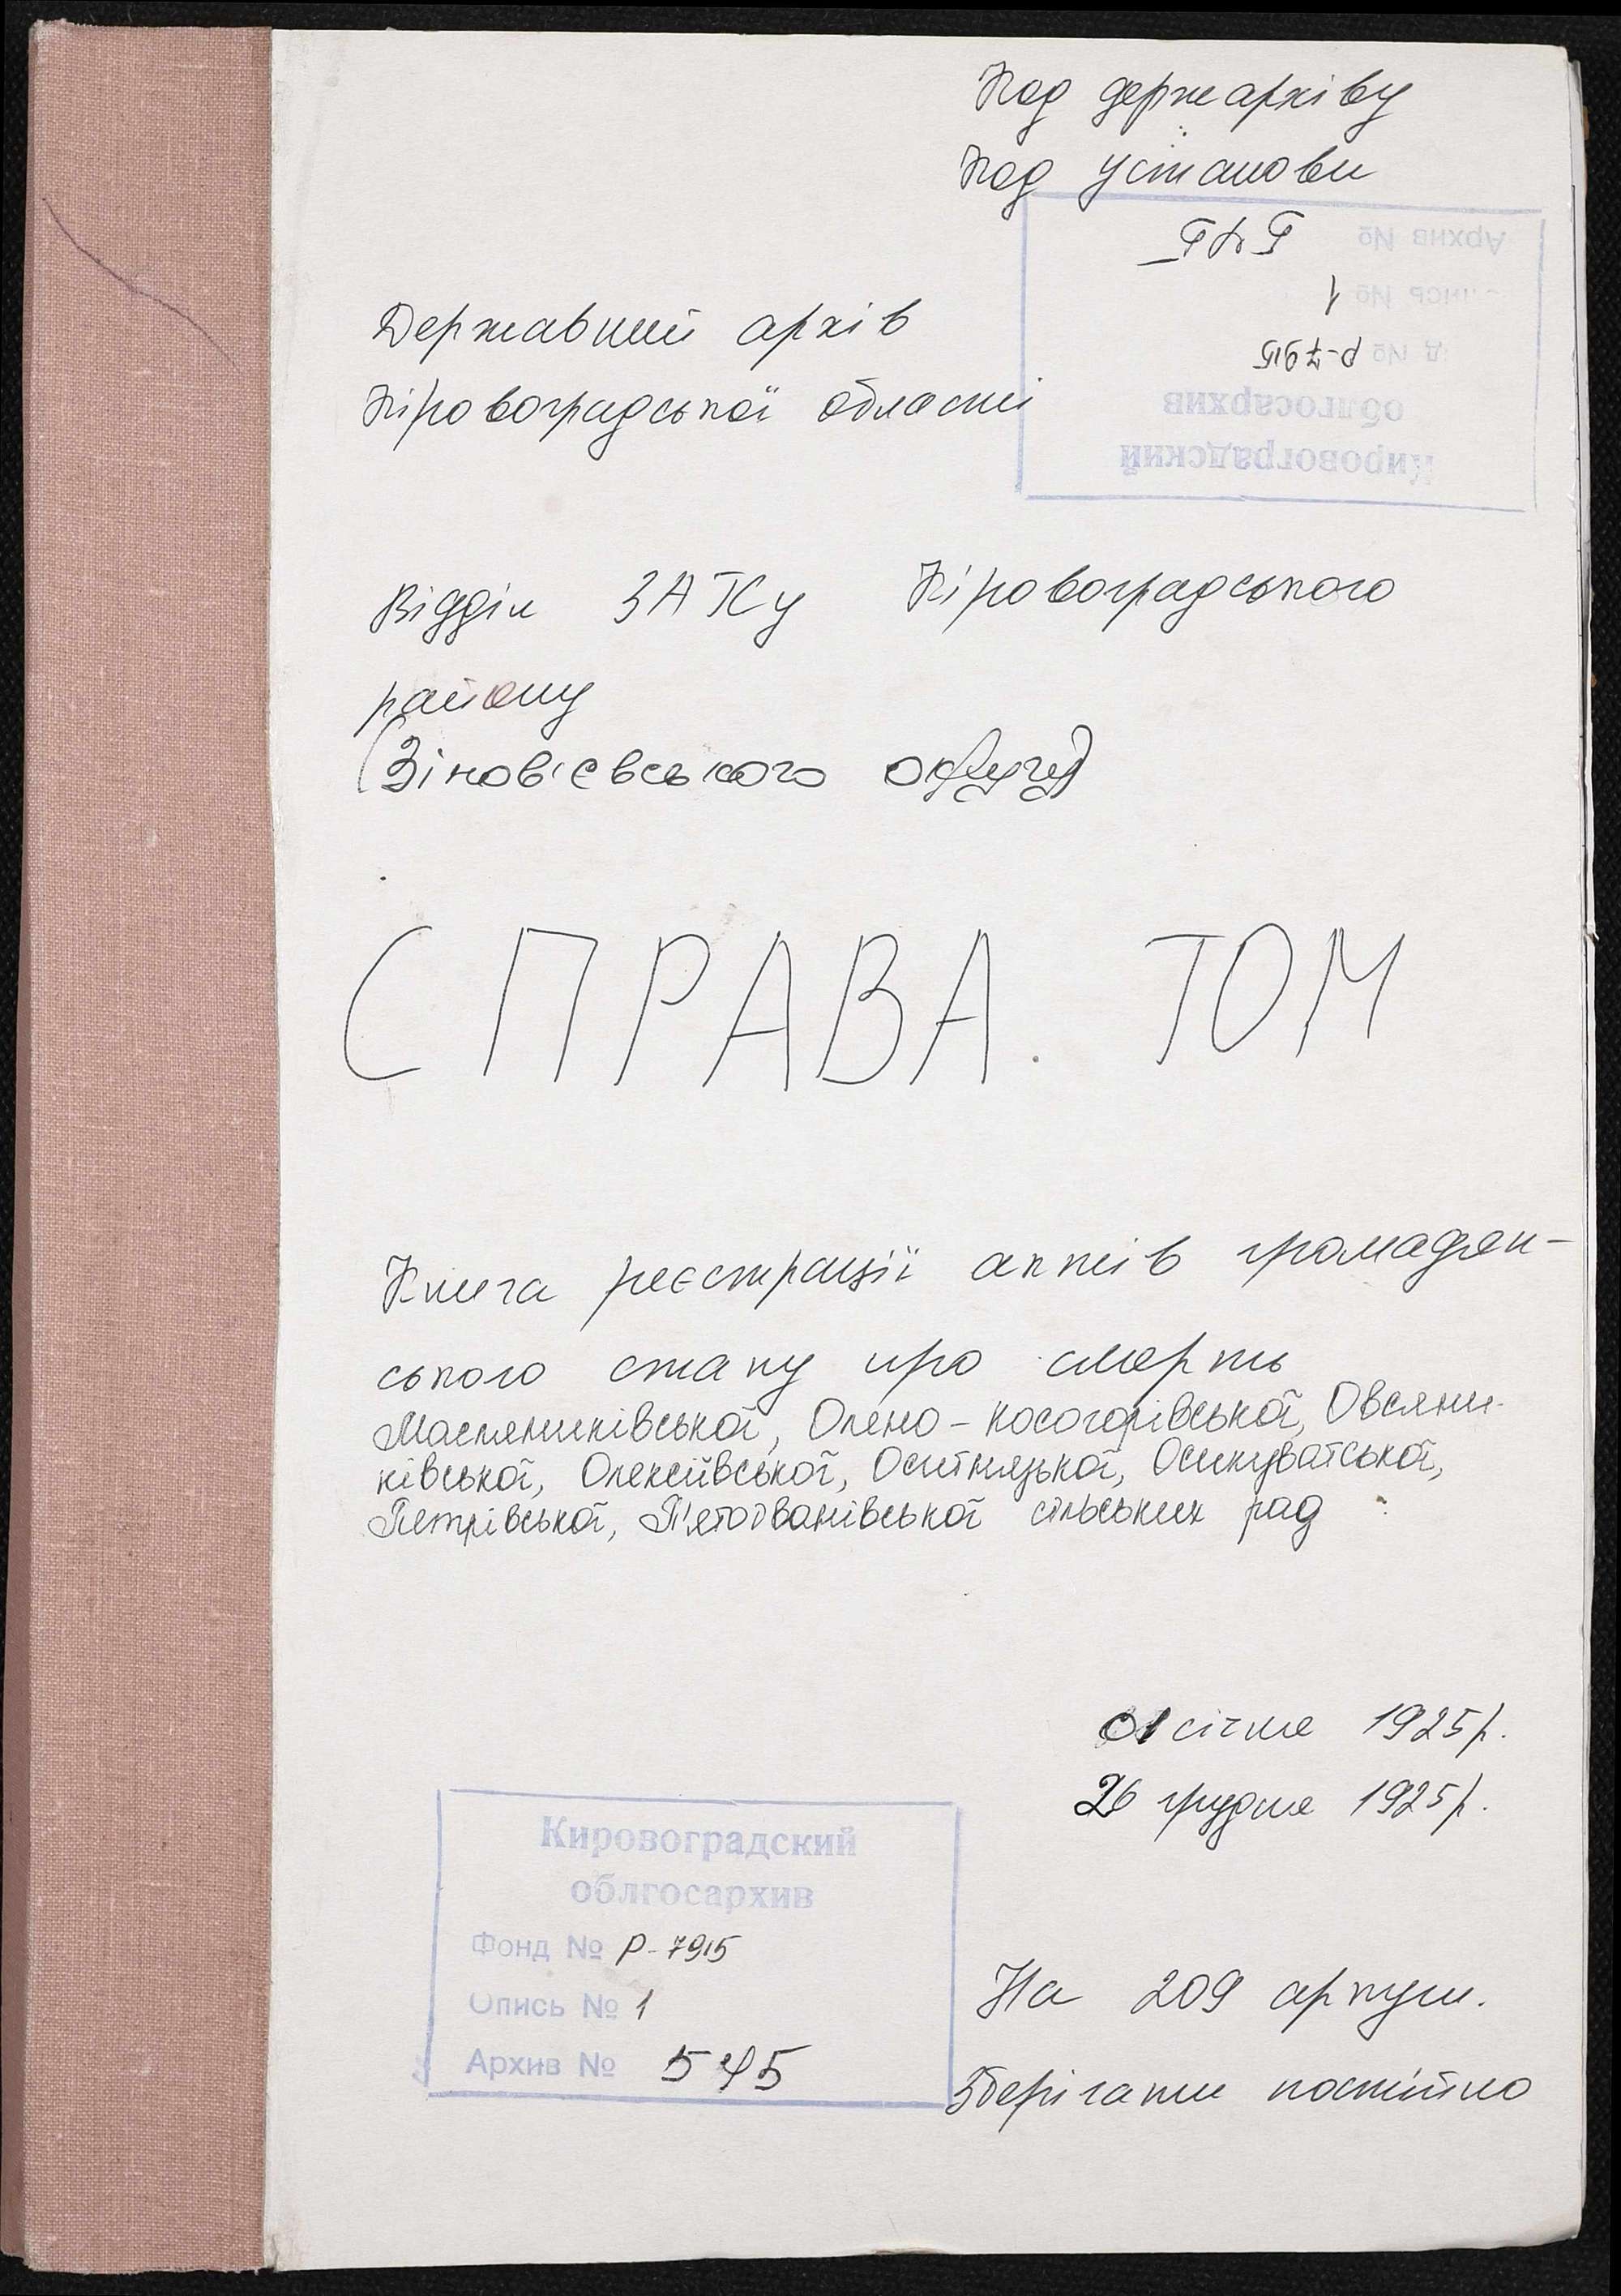 Код держархіву
Код установи
Архив № 545
пись № 1
д № Р-7915
облгосархив
Кировоградский
Державний архів
Кіровоградської області
Відділ ЗАГСу Кіровоградського
району
(Зінов'євського округу)
СПРАВА. ТОМ
Книга реєстрації актів громадян-
ського стану про смерть
Маслениківської, Олено-Косогорівської, Овсяни-
ківської, Олексіївської, Оситнязької, Осикуватської,
Петрівської, П'ятоіванівської сільських рад
01 січня 1925р.
26 грудня 1925р.
Кировоградский
облгосархив
Фонд № Р-7915
Опись № 1
Архив № 545
На 209 аркуш.
Зберігати постійно